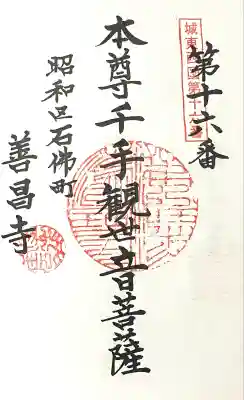 第十六番
城東西國第十六番
本尊千手観世音菩薩
昭和区石佛町
善昌寺